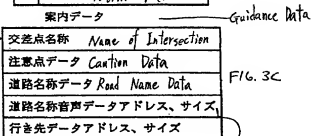 案内データ Guidance Data
交差点名称 Name of Intersection
注意点データ Caution Data
道路名称データ Road Name Data
FIG. 3C
道路名称音声データアドレス、サイズ
行き先データアドレス、サイズ